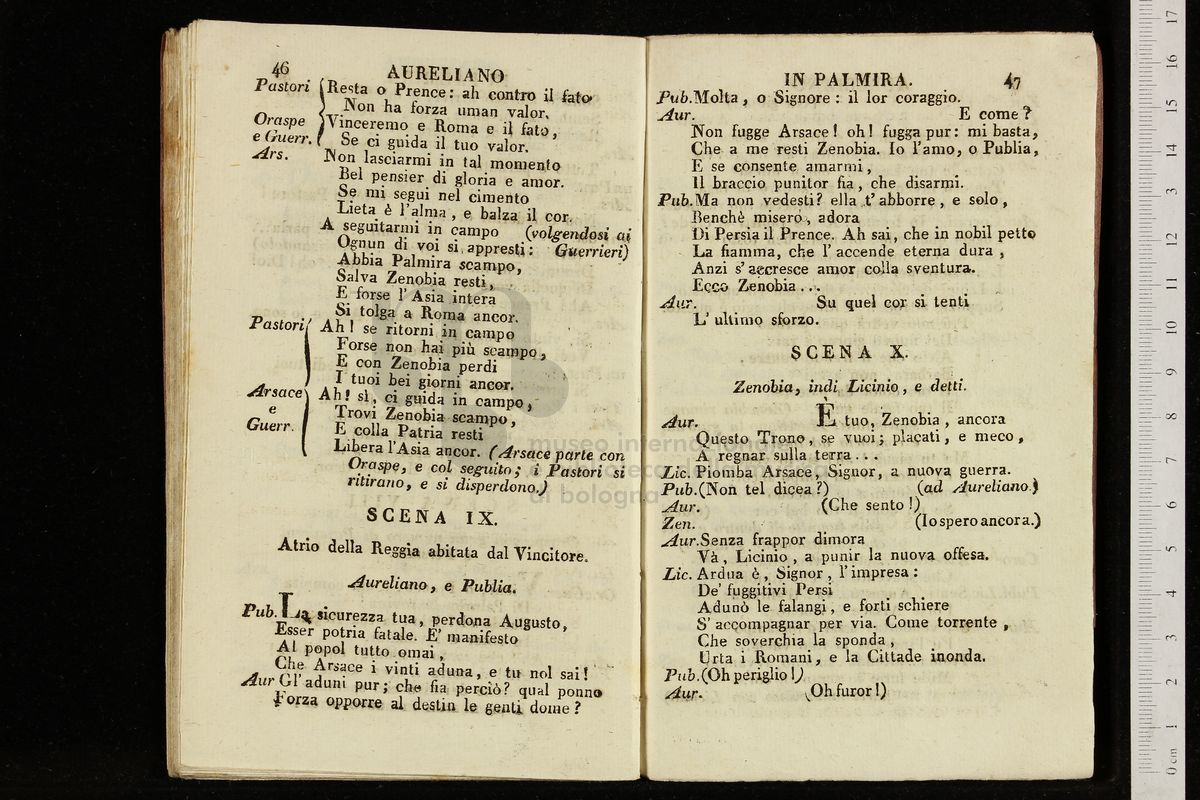 46
AURELIANO
Pastori Resta o Prence: ah contro il fato
Non ha forza uman valor.
Oraspe Vinceremo e Roma e il fato,
e Guerr. Se ci guida il tuo valor.
Ars. Non lasciarmi in tal momento
Bel pensier di gloria e amor.
Se mi segui nel cimento
Lieta è l'alma, e balza il cor.
A seguitarmi in campo (volgendosi ai
Ognun di voi si appresti: Guerrieri)
Abbia Palmira scampo,
Salva Zenobia resti,
E forse l'Asia intera
Si tolga a Roma ancor.
Pastori Ah! se ritorni in campo
Forse non hai più scampo,
E con Zenobia perdi
I tuoi bei giorni ancor.
Arsace Ah! sì, ci guida in campo,
e Trovi Zenobia scampo,
Guerr. E colla Patria resti
Libera l'Asia ancor. (Arsace parte con
Oraspe, e col seguito; i Pastori si
ritirano, e si disperdono.)
SCENA IX.
Atrio della Reggia abitata dal Vincitore.
Aureliano, e Publia.
Pub. La sicurezza tua, perdona Augusto,
Esser potria fatale. E' manifesto
Al popol tutto omai,
Che Arsace i vinti aduna, e tu nol sai!
Aur Gl'aduni pur; che fia perciò? qual ponno
Forza opporre al destin le genti dome?
IN PALMIRA.
47
Pub. Molta, o Signore: il lor coraggio.
Aur. E come?
Non fugge Arsace! oh! fugga pur: mi basta,
Che a me resti Zenobia. Io l'amo, o Publia,
E se consente amarmi,
Il braccio punitor fia, che disarmi.
Pub. Ma non vedesti? ella t'abborre, e solo,
Benchè misero, adora
Di Persia il Prence. Ah sai, che in nobil petto
La fiamma, che l'accende eterna dura,
Anzi s'accresce amor colla sventura.
Ecco Zenobia...
Aur. Su quel cor si tenti
L'ultimo sforzo.
SCENA X.
Zenobia, indi Licinio, e detti.
Aur. È tuo, Zenobia, ancora
Questo Trono, se vuoi; placati, e meco,
A regnar sulla terra...
Lic. Piomba Arsace, Signor, a nuova guerra.
Pub. (Non tel dicea?) (ad Aureliano.)
Aur. (Che sento!)
Zen. (Io spero ancora.)
Aur. Senza frappor dimora
Và, Licinio, a punir la nuova offesa.
Lic. Ardua è, Signor, l'impresa:
De' fuggitivi Persi
Adunò le falangi, e forti schiere
S'accompagnar per via. Come torrente,
Che soverchia la sponda,
Urta i Romani, e la Cittade inonda.
Pub. (Oh periglio!)
Aur. (Oh furor!)
museo internazionale
di bologna
0 cm 1 2 3 4 5 6 7 8 9 10 11 12 13 14 15 16 17